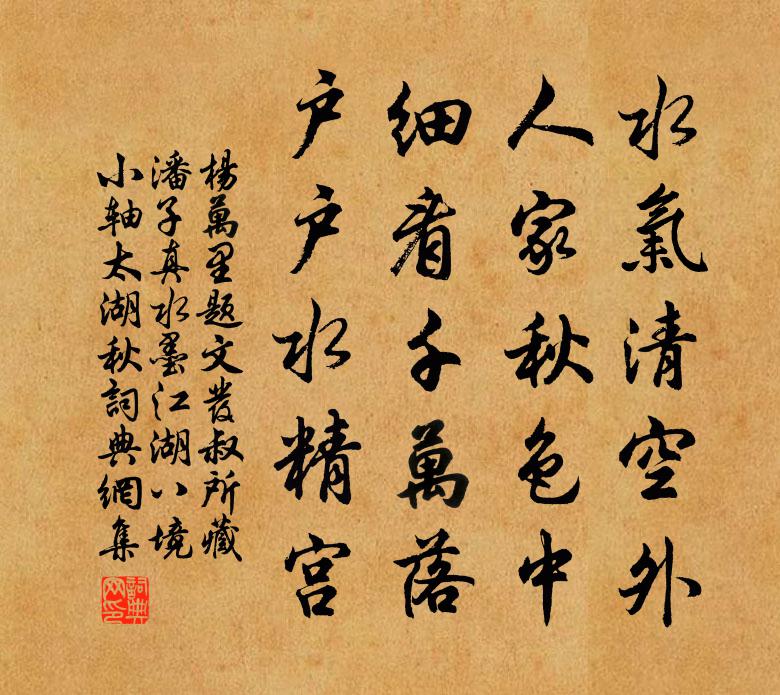 水氣清空外
人家秋色中
细看千萬落
户户水精宫
楊萬里题文發叔所藏
潘子真水墨江湖八境
小轴太湖秋詞典網集
詞典
网印